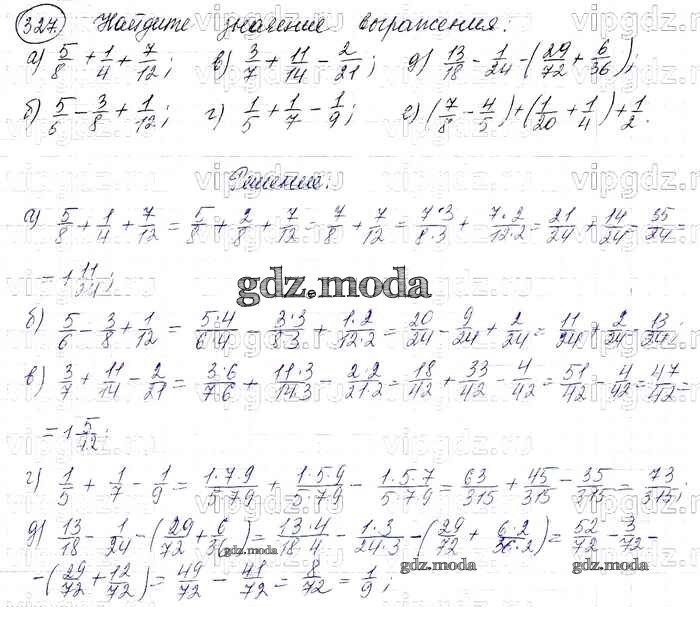 327. Найдите значение выражения:
а) 5/8 + 1/4 + 7/12; в) 3/7 + 11/14 − 2/21; д) 13/18 − 1/24 − (29/72 + 6/36);
б) 5/6 − 3/8 + 1/12; г) 1/5 + 1/7 − 1/9; е) (7/8 − 4/5) + (1/20 + 1/4) + 1/2.
Решение:
а) 5/8 + 1/4 + 7/12 = 5/8 + 2/8 + 7/12 = 7/8 + 7/12 = 7·3/8·3 + 7·2/12·2 = 21/24 + 14/24 = 35/24 =
= 1 11/24;
gdz.moda
б) 5/6 − 3/8 + 1/12 = 5·4/6·4 − 3·3/8·3 + 1·2/12·2 = 20/24 − 9/24 + 2/24 = 11/24 + 2/24 = 13/24;
в) 3/7 + 11/14 − 2/21 = 3·6/7·6 + 11·3/14·3 − 2·2/21·2 = 18/42 + 33/42 − 4/42 = 51/42 − 4/42 = 47/42 =
= 1 5/42;
г) 1/5 + 1/7 − 1/9 = 1·7·9/5·7·9 + 1·5·9/5·7·9 − 1·5·7/5·7·9 = 63/315 + 45/315 − 35/315 = 73/315;
д) 13/18 − 1/24 − (29/72 + 6/36) = 13·4/18·4 − 1·3/24·3 − (29/72 + 6·2/36·2) = 52/72 − 3/72 −
gdz.moda gdz.moda gdz.moda
− (29/72 + 12/72) = 49/72 − 41/72 = 8/72 = 1/9;